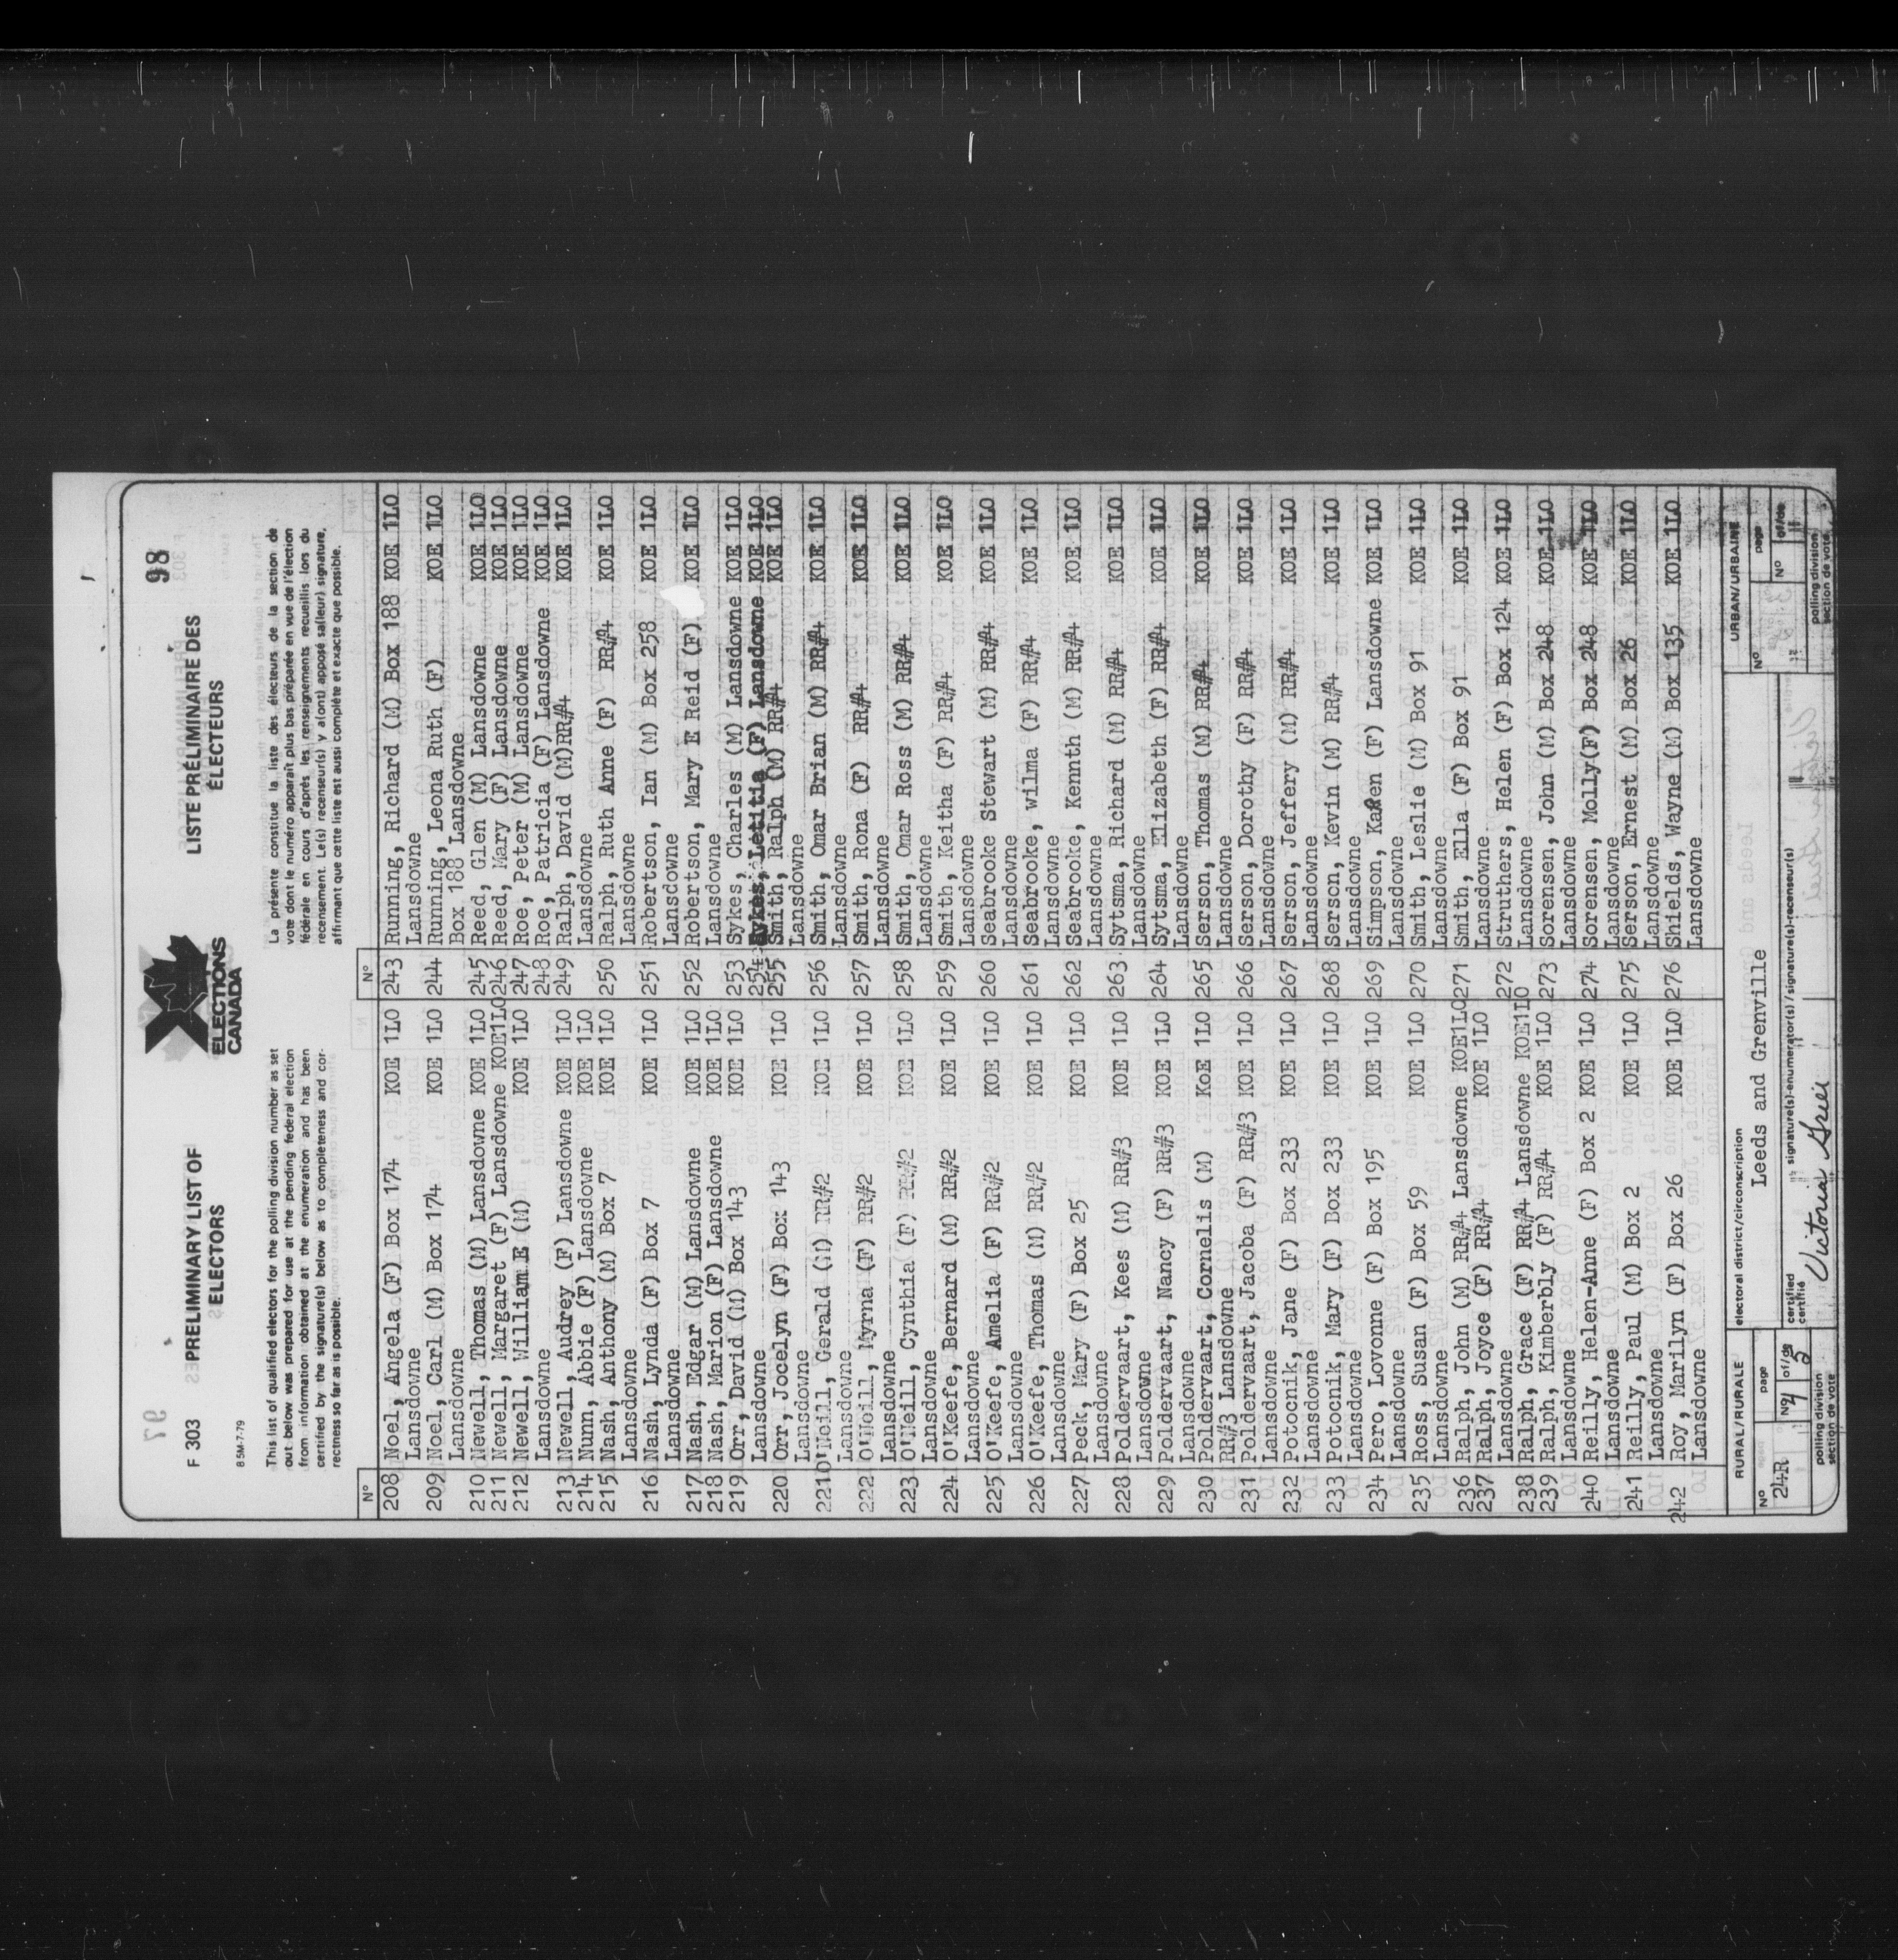 98
F 303 PRELIMINARY LIST OF
ELECTORS
8 5M-7-79
ELECTIONS
CANADA
LISTE PRÉLIMINAIRE DES
ÉLECTEURS
This list of qualified electors for the polling division number as set
out below was prepared for use at the pending federal election
from information obtained at the enumeration and has been
certified by the signature(s) below as to completeness and cor-
rectness so far as is possible.
La présente constitue la liste des électeurs de la section de
vote dont le numéro apparaît plus bas préparée en vue de l'élection
fédérale en cours d'après les renseignements recueillis lors du
recensement. Le(s) recenseur(s) y a(ont) apposé sa(leur) signature,
affirmant que cette liste est aussi complète et exacte que possible.
Nº
208 Noel, Angela (F) Box 174 KOE 1LO
Lansdowne
209 Noel, Carl (M) Box 174 KOE 1LO
Lansdowne
210 Newell, Thomas (M) Lansdowne KOE 1LO
211 Newell, Margaret (F) Lansdowne KOE1LO
212 Newell, William E (M) KOE 1LO
Lansdowne
213 Newell, Audrey (F) Lansdowne KOE 1LO
214 Nunn, Abbie (F) Lansdowne KOE 1LO
215 Nash, Anthony (M) Box 7 KOE 1LO
Lansdowne
216 Nash, Lynda (F) Box 7 KOE 1LO
Lansdowne
217 Nash, Edgar (M) Lansdowne KOE 1LO
218 Nash, Marion (F) Lansdowne KOE 1LO
219 Orr, David (M) Box 143 KOE 1LO
Lansdowne
220 Orr, Jocelyn (F) Box 143 KOE 1LO
Lansdowne
221O'Neill, Gerald (M) RR#2 KOE 1LO
Lansdowne
222 O'Neill, Myrna (F) RR#2 KOE 1LO
Lansdowne
223 O'Neill, Cynthia (F) RR#2 KOE 1LO
Lansdowne
224 O'Keefe, Bernard (M) RR#2 KOE 1LO
Lansdowne
225 O'Keefe, Amelia (F) RR#2 KOE 1LO
Lansdowne
226 O'Keefe, Thomas (M) RR#2 KOE 1LO
Lansdowne
227 Peck, Mary (F) Box 25 KOE 1LO
Lansdowne
228 Poldervaart, Kees (M) RR#3 KOE 1LO
Lansdowne
229 Poldervaart, Nancy (F) RR#3 KOE 1LO
Lansdowne
230 Poldervaart, Cornelis (M) KoE 1LO
RR#3 Lansdowne
231 Poldervaart, Jacoba (F) RR#3 KOE 1LO
Lansdowne
232 Potocnik, Jane (F) Box 233 KOE 1LO
Lansdowne
233 Potocnik, Mary (F) Box 233 KOE 1LO
Lansdowne
234 Pero, Lovonne (F) Box 195 KOE 1LO
Lansdowne
235 Ross, Susan (F) Box 59 KOE 1LO
Lansdowne
236 Ralph, John (M) RR#4 Lansdowne KOE1LO
237 Ralph, Joyce (F) RR#4 KOE 1LO
Lansdowne
238 Ralph, Grace (F) RR#4 Lansdowne KOE1LO
239 Ralph, Kimberbly (F) RR#4 KOE 1LO
Lansdowne
240 Reilly, Helen-Anne (F) Box 2 KOE 1LO
Lansdowne
241 Reilly, Paul (M) Box 2 KOE 1LO
Lansdowne
242 Roy, Marilyn (F) Box 26 KOE 1LO
Lansdowne
Nº
243 Running, Richard (M) Box 188 KOE 1LO
Lansdowne
244 Running, Leona Ruth (F) KOE 1LO
Box 188 Lansdowne
245 Reed, Glen (M) Lansdowne KOE 1LO
246 Reed, Mary (F) Lansdowne KOE 1LO
247 Roe, Peter (M) Lansdowne KOE 1LO
248 Roe, Patricia (F) Lansdowne KOE 1LO
249 Ralph, David (M)RR#4 KOE 1LO
Lansdowne
250 Ralph, Ruth Anne (F) RR#4 KOE 1LO
Lansdowne
251 Robertson, Ian (M) Box 258 KOE 1LO
Lansdowne
252 Robertson, Mary E Reid (F) KOE 1LO
Lansdowne
253 Sykes, Charles (M) Lansdowne KOE 1LO
254 Sykes, Letitia (F) Lansdowne KOE 1LO
255 Smith, Ralph (M) RR#4 KOE 1LO
Lansdowne
256 Smith, Omar Brian (M) RR#4 KOE 1LO
Lansdowne
257 Smith, Rona (F) RR#4 KOE 1LO
Lansdowne
258 Smith, Omar Ross (M) RR#4 KOE 1LO
Lansdowne
259 Smith, Keitha (F) RR#4 KOE 1LO
Lansdowne
260 Seabrooke Stewart (M) RR#4 KOE 1LO
Lansdowne
261 Seabrooke, Wilma (F) RR#4 KOE 1LO
Lansdowne
262 Seabrooke, Kennth (M) RR#4 KOE 1LO
Lansdowne
263 Sytsma, Richard (M) RR#4 KOE 1LO
Lansdowne
264 Sytsma, Elizabeth (F) RR#4 KOE 1LO
Lansdowne
265 Serson, Thomas (M) RR#4 KOE 1LO
Lansdowne
266 Serson, Dorothy (F) RR#4 KOE 1LO
Lansdowne
267 Serson, Jeffery (M) RR#4 KOE 1LO
Lansdowne
268 Serson, Kevin (M) RR#4 KOE 1LO
Lansdowne
269 Simpson, Karen (F) Lansdowne KOE 1LO
Lansdowne
270 Smith, Leslie (M) Box 91 KOE 1LO
Lansdowne
271 Smith, Ella (F) Box 91 KOE 1LO
Lansdowne
272 Struthers, Helen (F) Box 124 KOE 1LO
Lansdowne
273 Sorensen, John (M) Box 248 KOE 1LO
Lansdowne
274 Sorensen, Molly(F) Box 248 KOE 1LO
Lansdowne
275 Serson, Ernest (M) Box 26 KOE 1LO
Lansdowne
276 Shields, Wayne (M) Box 135 KOE 1LO
Lansdowne
RURAL/RURALE
Nº
24R
page
Nº 4 of/de 5
polling division
section de vote
electoral district/circonscription
Leeds and Grenville
certified
certifié
signature(s)-enumerator(s)/signature(s)-recenseur(s)
Victoria
URBAN/URBAINE
Nº
page
Nº of/de
polling division
section de vote